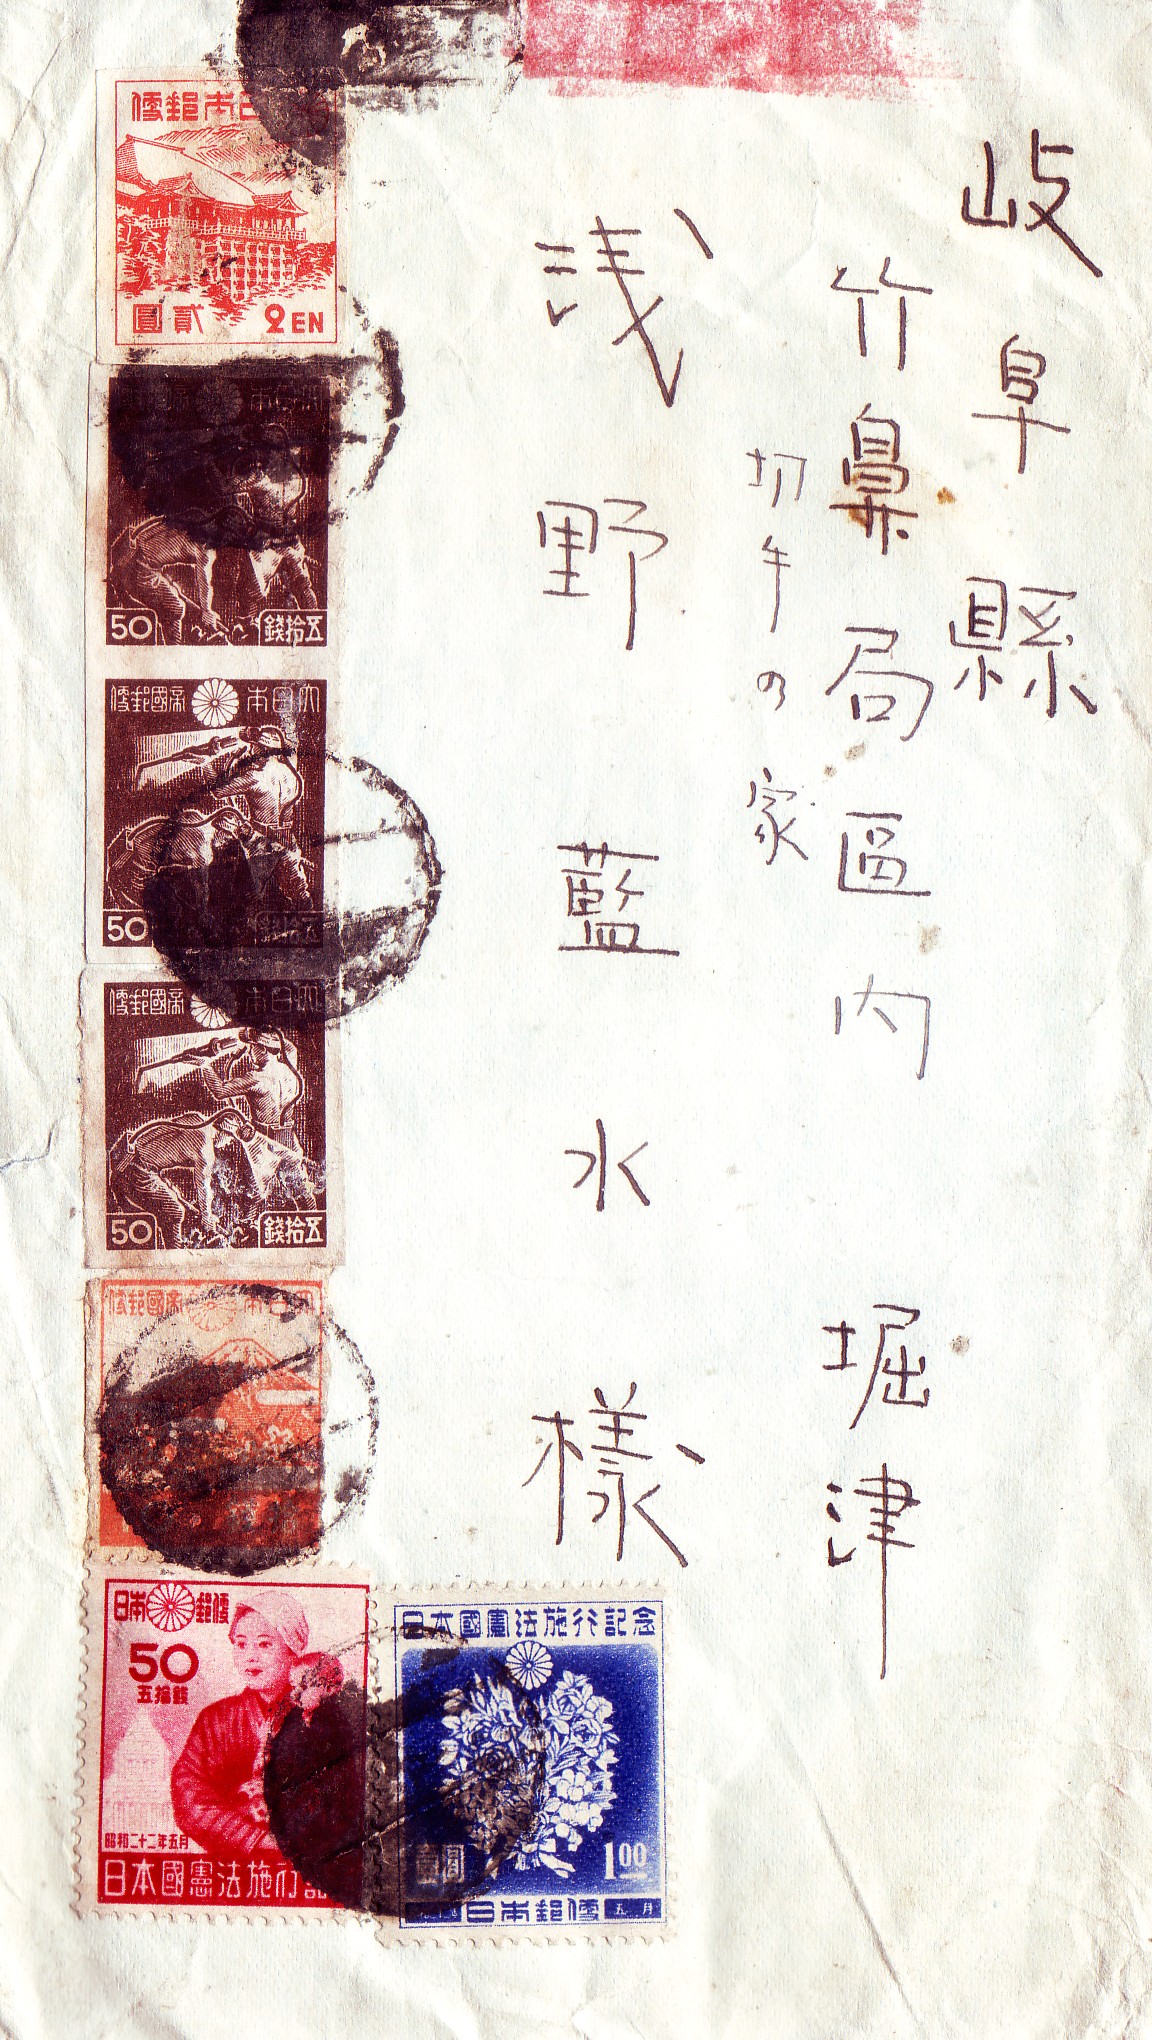 岐阜縣
竹鼻局區内 堀津
切手の家
浅野藍水様
便郵本日
圓貳 2EN
本日
50 錢拾五
便郵國帝本日大
50
便郵國帝本日大
50 錢拾五
便郵國帝本日大
日本郵便
50
五拾銭
昭和二十二年五月
日本國憲法施行記
日本國憲法施行記念
壹圓 1.00
日本郵便 五月